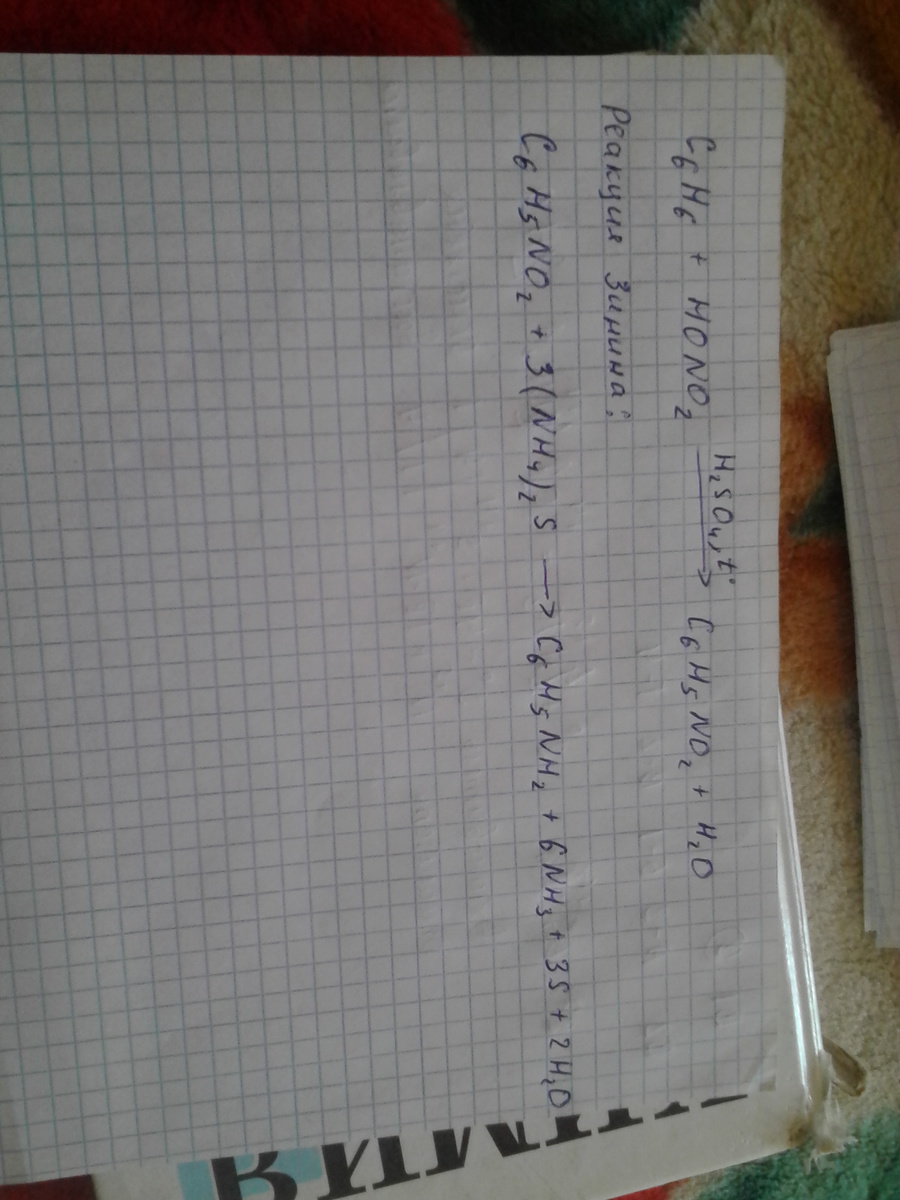 C₆H₆ + HONO₂ —H₂SO₄, t°→ C₆H₅NO₂ + H₂O
Реакция Зинина:
C₆H₅NO₂ + 3(NH₄)₂S → C₆H₅NH₂ + 6NH₃ + 3S + 2H₂O